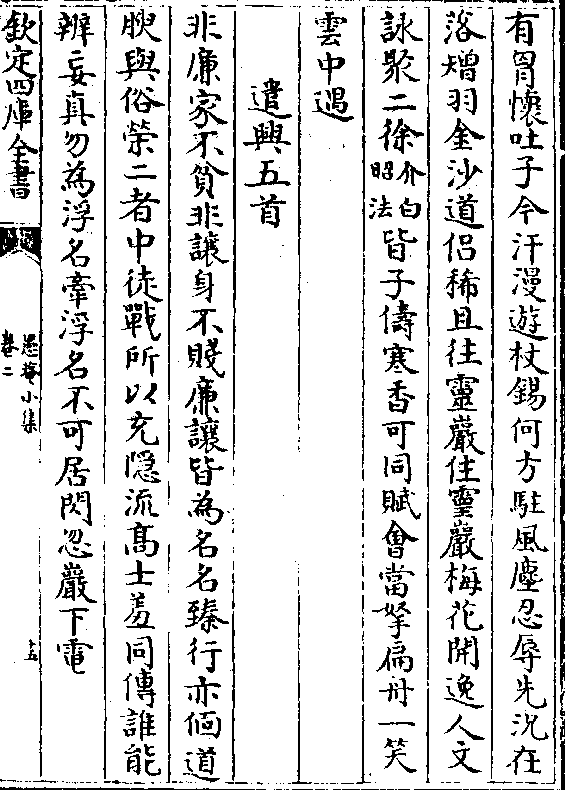 有胃懷吐子今汗漫遊杖錫何方駐風塵忍辱先況在
落矰羽金沙道侶稀且往靈巖住靈巖梅花開逸人文
詠聚二徐介白昭法皆子儔寒香可同賦會當拏扁舟一笑
雲中遇
遣興五首
非廉家不貧非讓身不賤廉讓皆為名名臻行亦徊道
腴與俗榮二者中徒戰所以充隱流髙士羞同傳誰能
辨妄真勿為浮名牽浮名不可居閃忽巖下電
欽定四庫全書
愚菴小集
卷二
十五